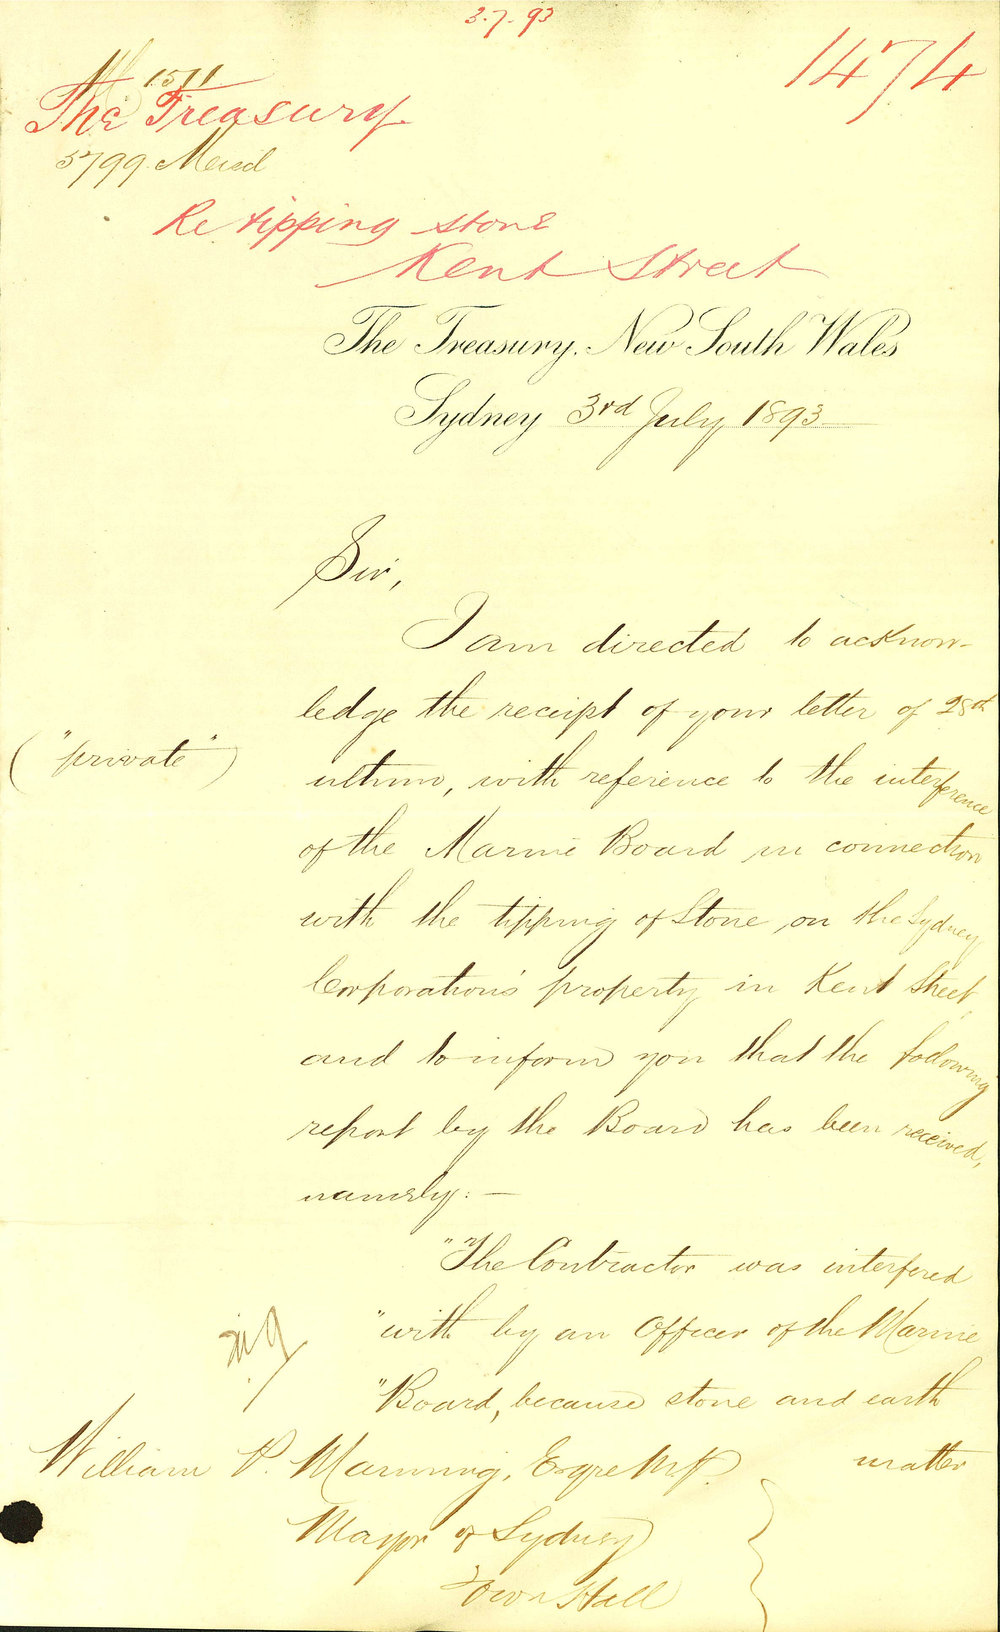 3.7.93
1474
1511
The Treasury
5799
Re tipping stone
Kent Street
The Treasury, New South Wales
Sydney 3rd July 1893
Sir,
I am directed to acknow-
ledge the receipt of your letter of 28th
("private")
ultimo, with reference to the interference
of the Marine Board in connection
with the tipping of Stone on the Sydney
Corporation's property in Kent Street
and to inform you that the following
report by the Board has been received,
namely:—
"The Contractor was interfered
"with by an Officer of the Marine
"Board, because stone and earth
matter
William P. Manning, Esqre M.P.
Mayor of Sydney
Town Hall